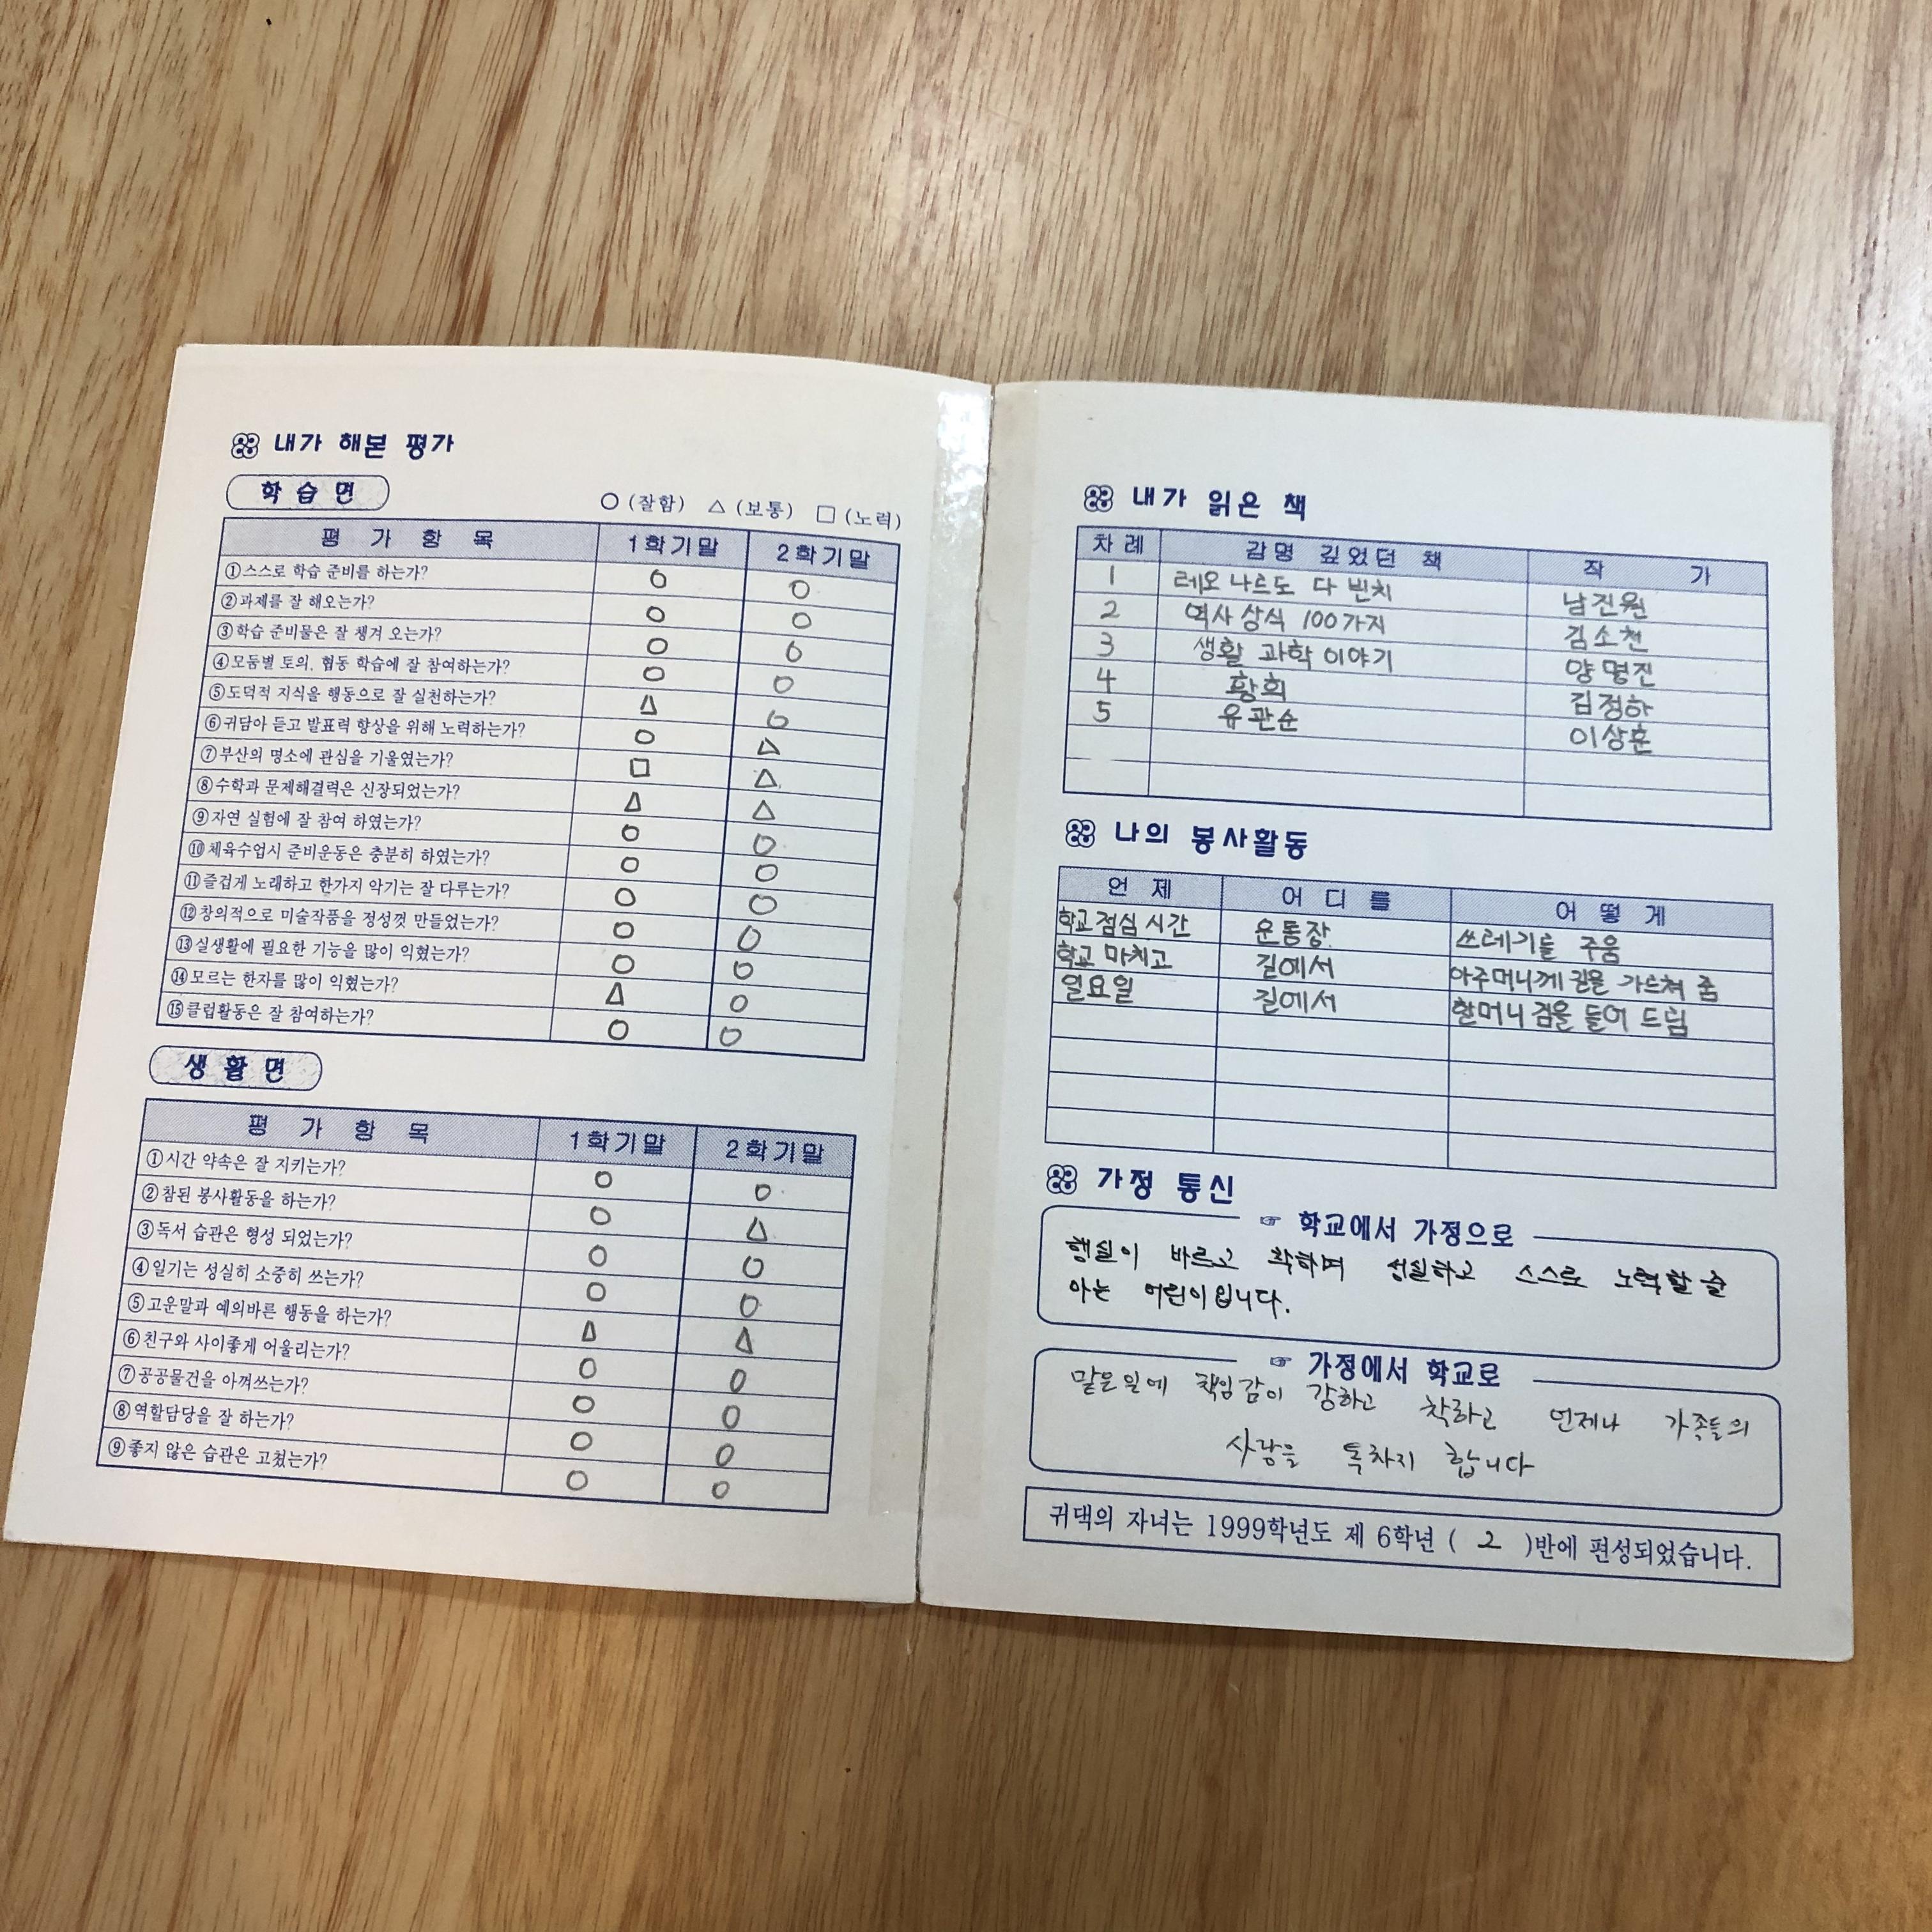 내가 해본 평가
학습면
○ (잘함) △ (보통) □ (노력)
평 가 항 목 1학기말 2학기말
①스스로 학습 준비를 하는가? ○ ○
②과제를 잘 해오는가? ○ ○
③학습 준비물은 잘 챙겨 오는가? ○ ○
④모둠별 토의, 협동 학습에 잘 참여하는가? ○ ○
⑤도덕적 지식을 행동으로 잘 실천하는가? △ ○
⑥귀담아 듣고 발표력 향상을 위해 노력하는가? ○ △
⑦부산의 명소에 관심을 기울였는가? □ △
⑧수학과 문제해결력은 신장되었는가? △ △
⑨자연 실험에 잘 참여 하였는가? ○ ○
⑩체육수업시 준비운동은 충분히 하였는가? ○ ○
⑪즐겁게 노래하고 한가지 악기는 잘 다루는가? ○ ○
⑫창의적으로 미술작품을 정성껏 만들었는가? ○ ○
⑬실생활에 필요한 기능을 많이 익혔는가? ○ ○
⑭모르는 한자를 많이 익혔는가? △ ○
⑮클럽활동은 잘 참여하는가? ○ ○
생활면
평 가 항 목 1학기말 2학기말
①시간 약속은 잘 지키는가? ○ ○
②참된 봉사활동을 하는가? ○ △
③독서 습관은 형성 되었는가? ○ ○
④일기는 성실히 소중히 쓰는가? ○ ○
⑤고운말과 예의바른 행동을 하는가? △ △
⑥친구와 사이좋게 어울리는가? ○ ○
⑦공공물건을 아껴쓰는가? ○ ○
⑧역할담당을 잘 하는가? ○ ○
⑨좋지 않은 습관은 고쳤는가? ○ ○
내가 읽은 책
차례 감명 깊었던 책 작 가
1 레오나르도 다 빈치 남진원
2 역사상식 100가지 김소천
3 생활 과학 이야기 양명진
4 황희 김정하
5 유관순 이상훈
나의 봉사활동
언 제 어 디 를 어 떻 게
학교 점심 시간 운동장. 쓰레기를 주움
학교 마치고 길에서 아주머니께 길을 가르쳐 줌
일요일 길에서 할머니 짐을 들어 드림
가정 통신
☞ 학교에서 가정으로
행실이 바르고 착하며 성실하고 스스로 노력할 줄
아는 어린이입니다.
☞ 가정에서 학교로
맡은일에 책임감이 강하고 착하고 언제나 가족들의
사랑을 독차지 합니다
귀댁의 자녀는 1999학년도 제 6학년 ( 2 )반에 편성되었습니다.